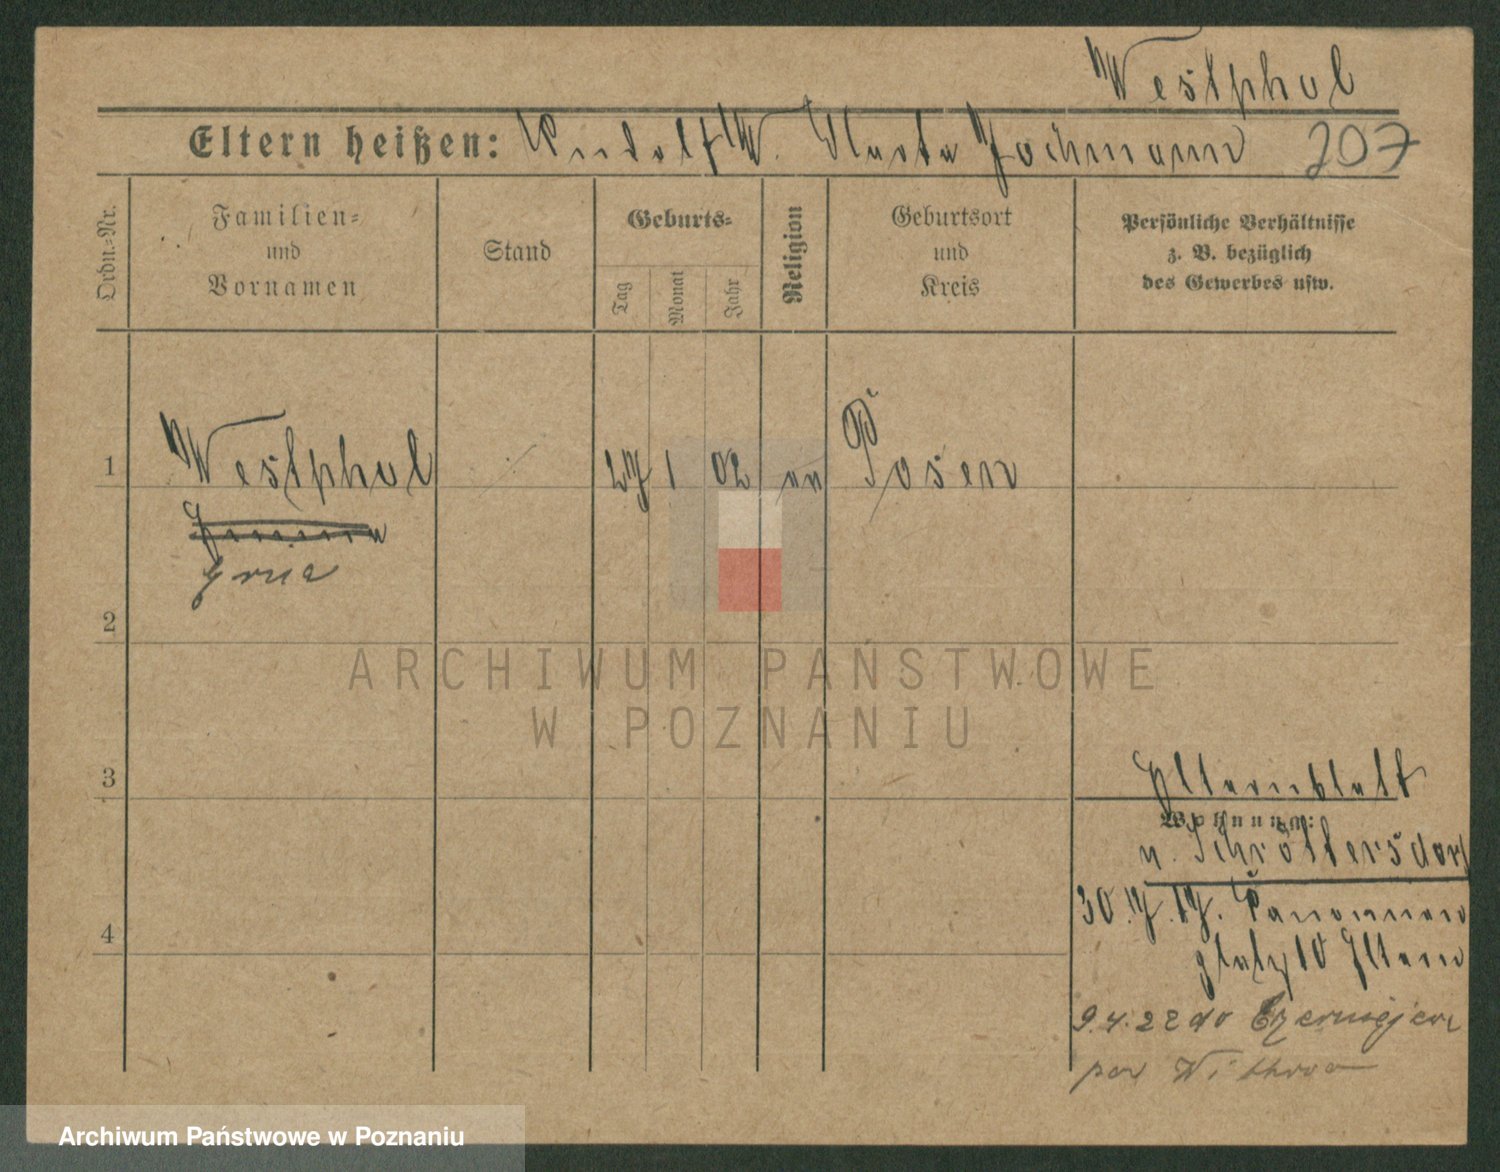 Westphal
Eltern heißen: Rudolf W. Marta Jochmann 207
Ordn.-Nr.
Familien-
und
Vornamen
Stand
Geburts-
Tag
Monat
Jahr
Religion
Geburtsort
und
Kreis
Persönliche Verhältnisse
z. B. bezüglich
des Gewerbes usw.
1 Westphal 27 1 02 Posen
2
3
4
Elternblatt
Wohnung:
n. Schröttersdorf
30. 17.
platz 10 Eltern
9.4.22 do Czerniejew
pow Witkowo
ARCHIWUM PAŃSTWOWE
W POZNANIU
Archiwum Państwowe w Poznaniu